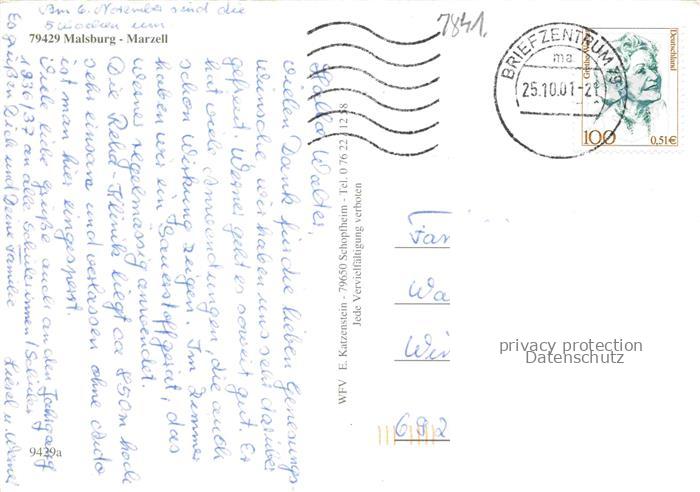 79429 Malsburg - Marzell
Am 6. November sind die
5 Wochen um
Hallo Walter,
vielen Dank für die lieben Genesungs-
wünsche, wir haben uns sehr darüber
gefreut. Werner geht es soweit gut. Er
hat viele Anwendungen, die auch
schon Wirkung zeigen. Im Zimmer
haben wir ein Sauerstoffgerät, das
Werner regelmässig anwendet.
Die Reha-Klinik liegt ca 850m hoch
sehr einsam und verlassen ohne Auto
ist man hier eingesperrt.
Viele liebe Grüße auch an den Jahrgang
1936/37 an alle Schülerinnen/Schüler
Es grüßen Dich und Deine Familie
Liesel u Werner
9429a
WFV E. Katzenstein - 79650 Schopfheim - Tel. 0 76 22 / 12 58
Jede Vervielfältigung verboten
7841.
BRIEFZENTRUM 79
ma
25.10.01-21
Deutschland
100
0,51€
Fa
Wa
Wi
692
privacy protection
Datenschutz